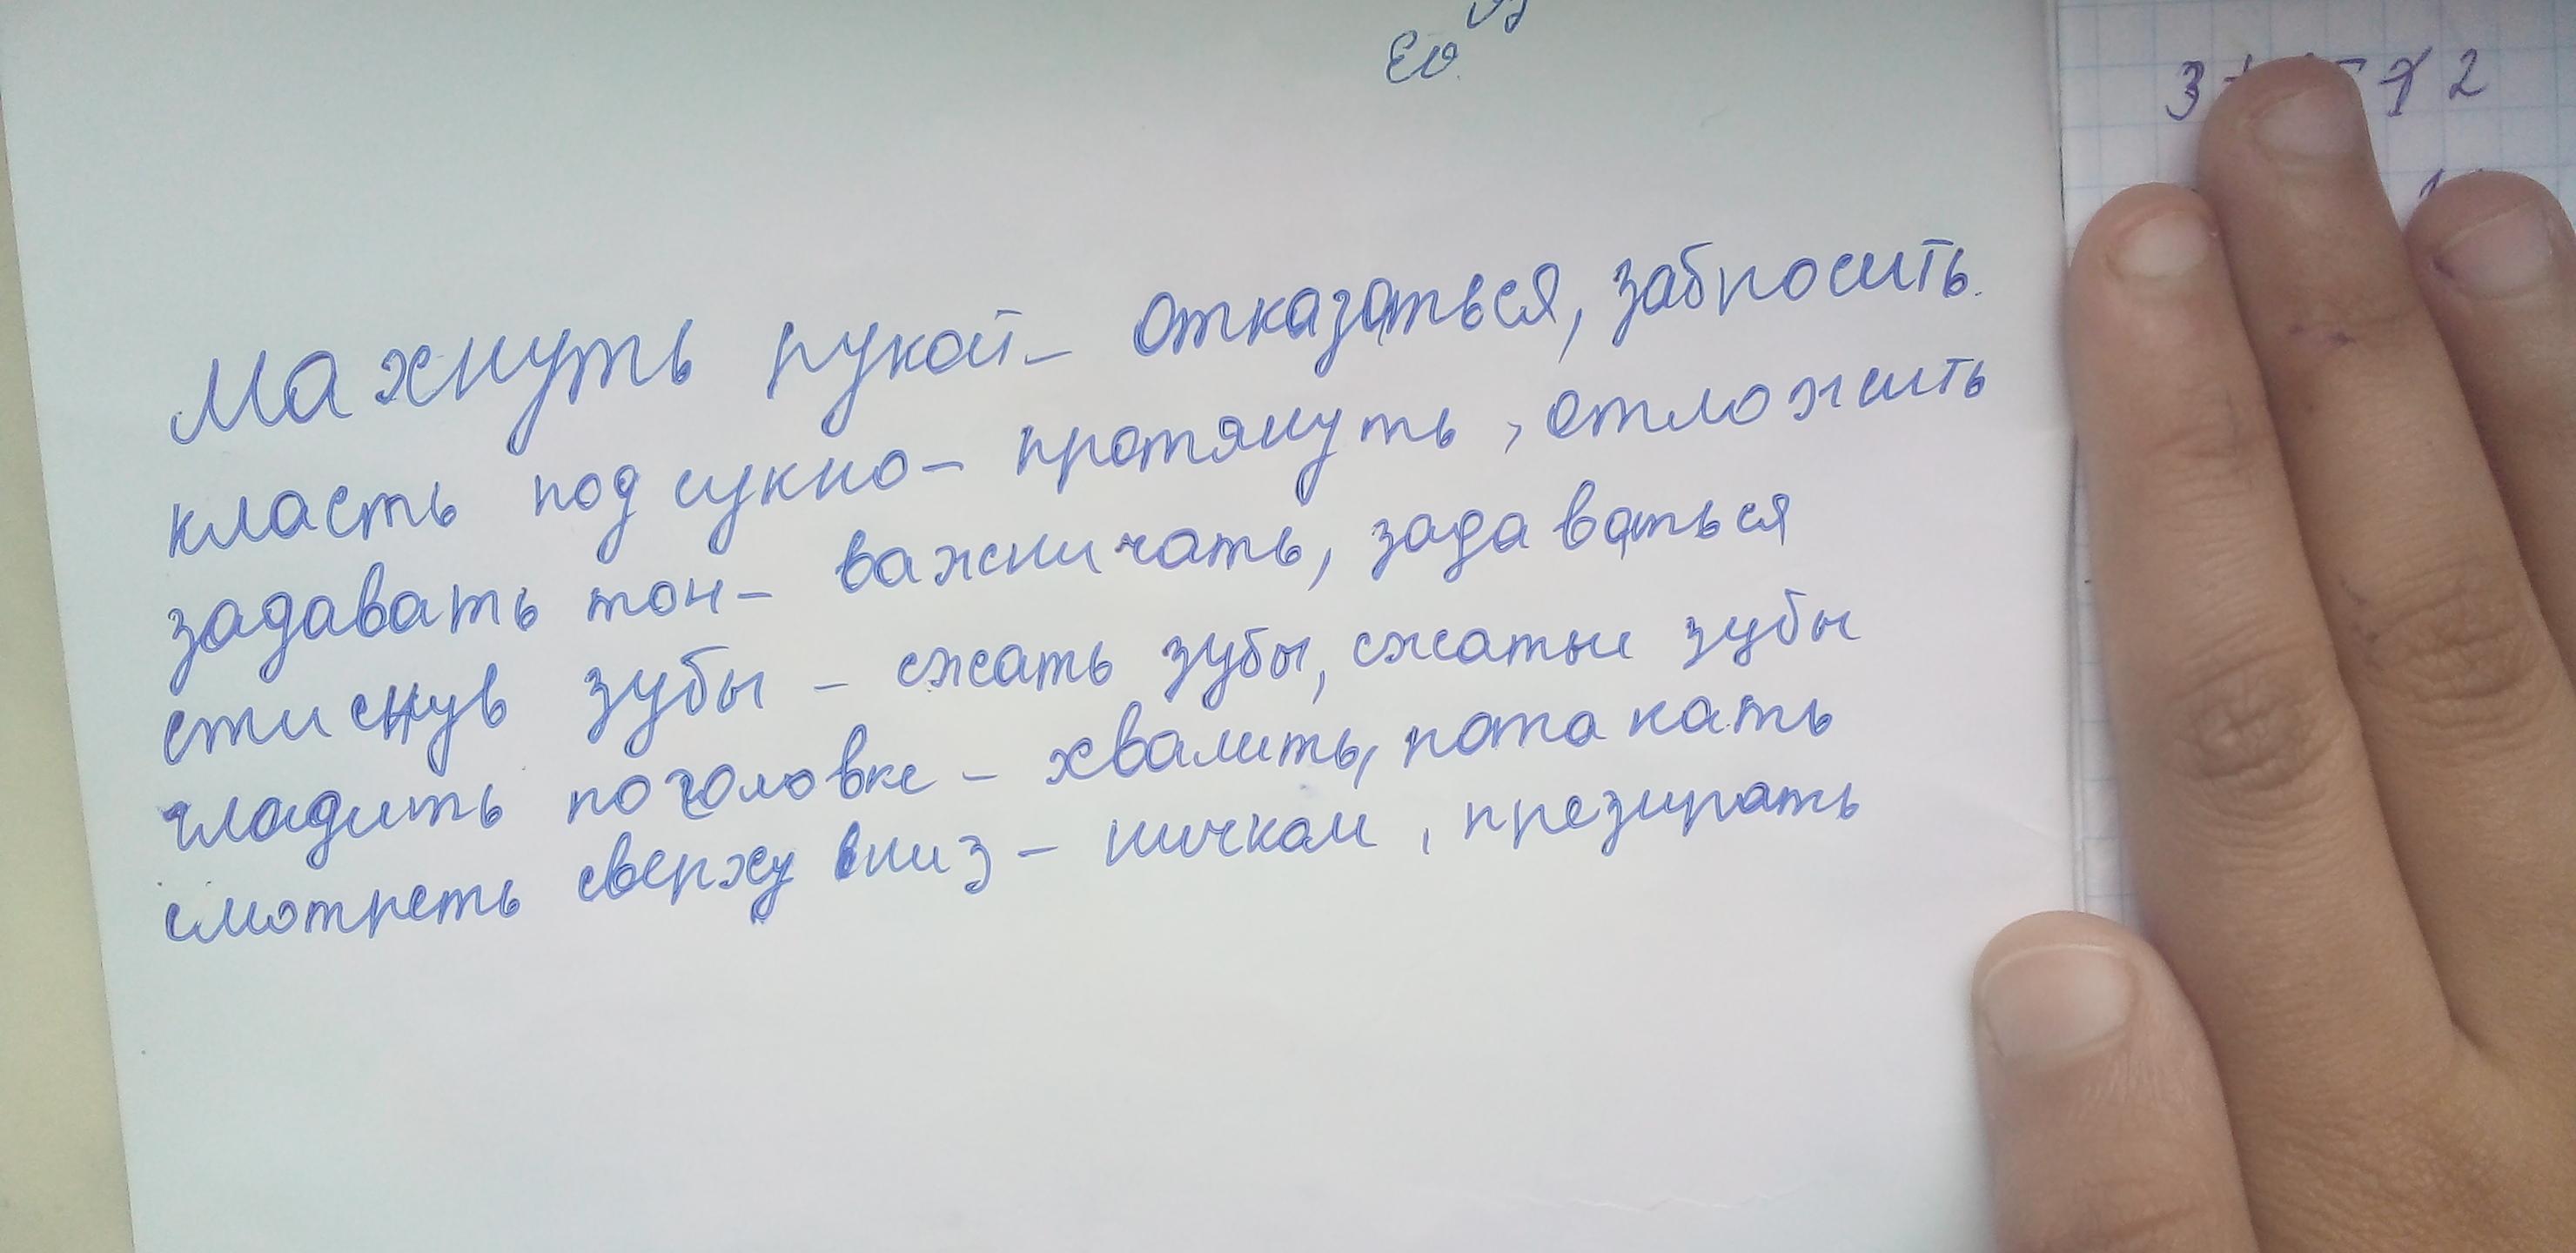 Махнуть рукой - отказаться, забросить.
класть под сукно - протянуть, отложить
задавать тон - важничать, задаваться
стиснув зубы - сжать зубы, сжатые зубы
гладить по головке - хвалить, потакать
смотреть сверху вниз - ничком, презирать